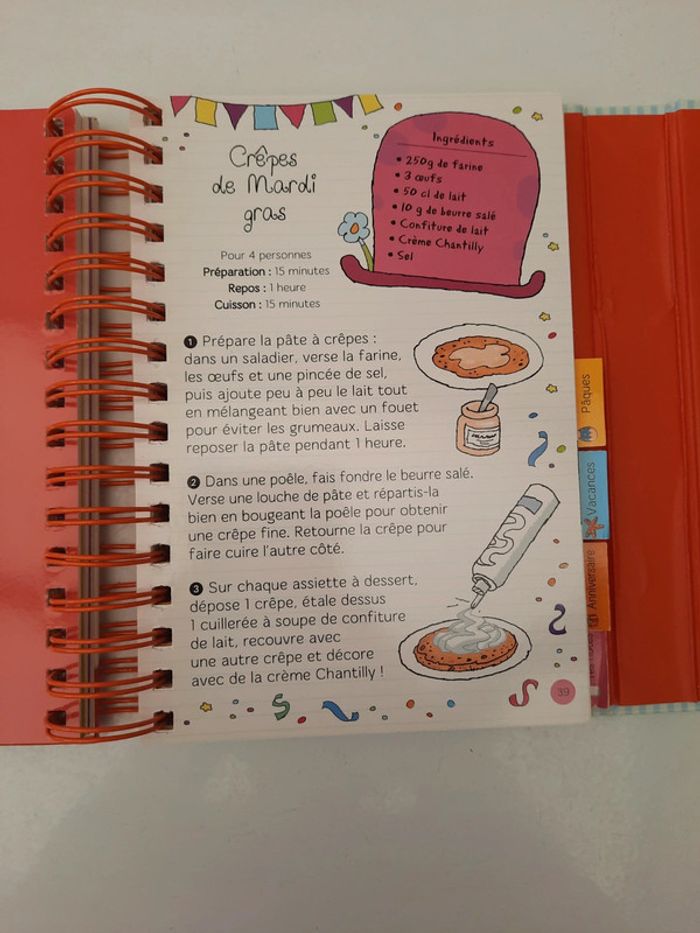 Crêpes
de Mardi
gras
Pour 4 personnes
Préparation : 15 minutes
Repos : 1 heure
Cuisson : 15 minutes
Ingrédients
• 250g de farine
• 3 œufs
• 50 cl de lait
• 10 g de beurre salé
• Confiture de lait
• Crème Chantilly
• Sel
1 Prépare la pâte à crêpes :
dans un saladier, verse la farine,
les œufs et une pincée de sel,
puis ajoute peu à peu le lait tout
en mélangeant bien avec un fouet
pour éviter les grumeaux. Laisse
reposer la pâte pendant 1 heure.
2 Dans une poêle, fais fondre le beurre salé.
Verse une louche de pâte et répartis-la
bien en bougeant la poêle pour obtenir
une crêpe fine. Retourne la crêpe pour
faire cuire l'autre côté.
3 Sur chaque assiette à dessert,
dépose 1 crêpe, étale dessus
1 cuillerée à soupe de confiture
de lait, recouvre avec
une autre crêpe et décore
avec de la crème Chantilly !
39
Pâques
Vacances
Anniversaire